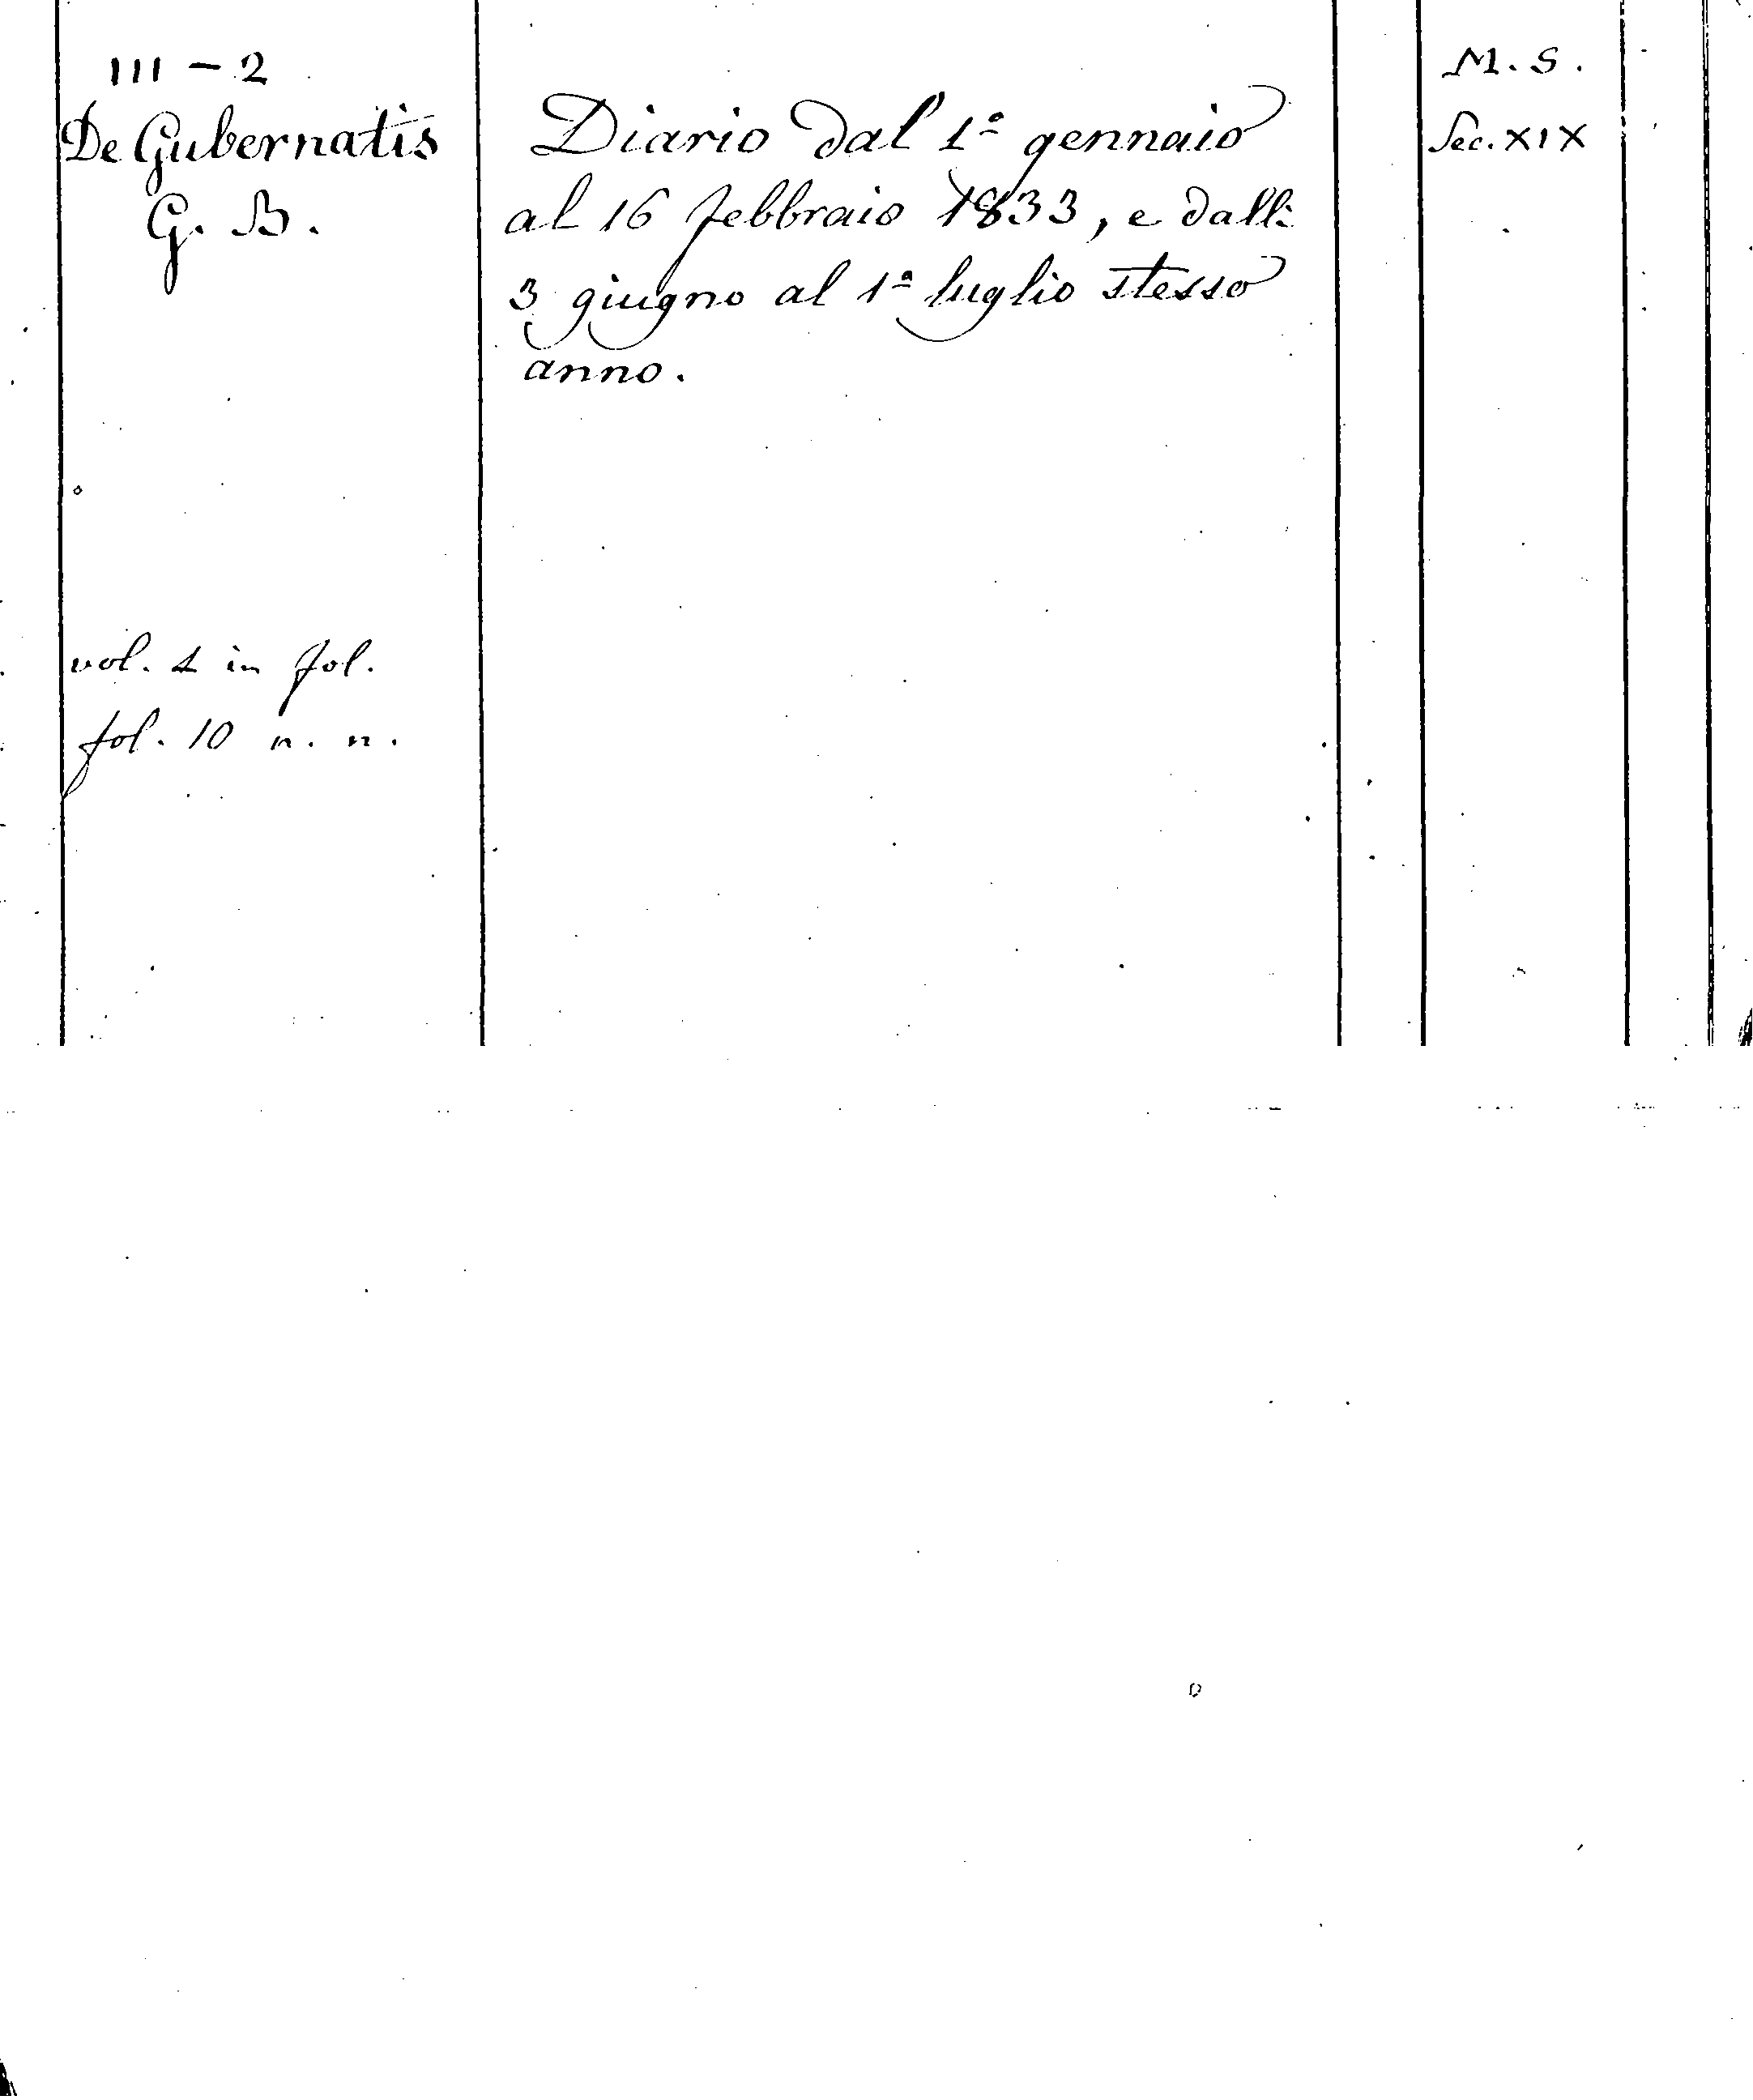 III - 2
De Gubernatis
G. B.
vol. 1 in fol.
fol. 10 n. n.
Diario dal 1º gennaio
al 16 febbraio 1833, e dalli
3 giugno al 1º luglio stesso
anno.
M. S.
Sec. XIX